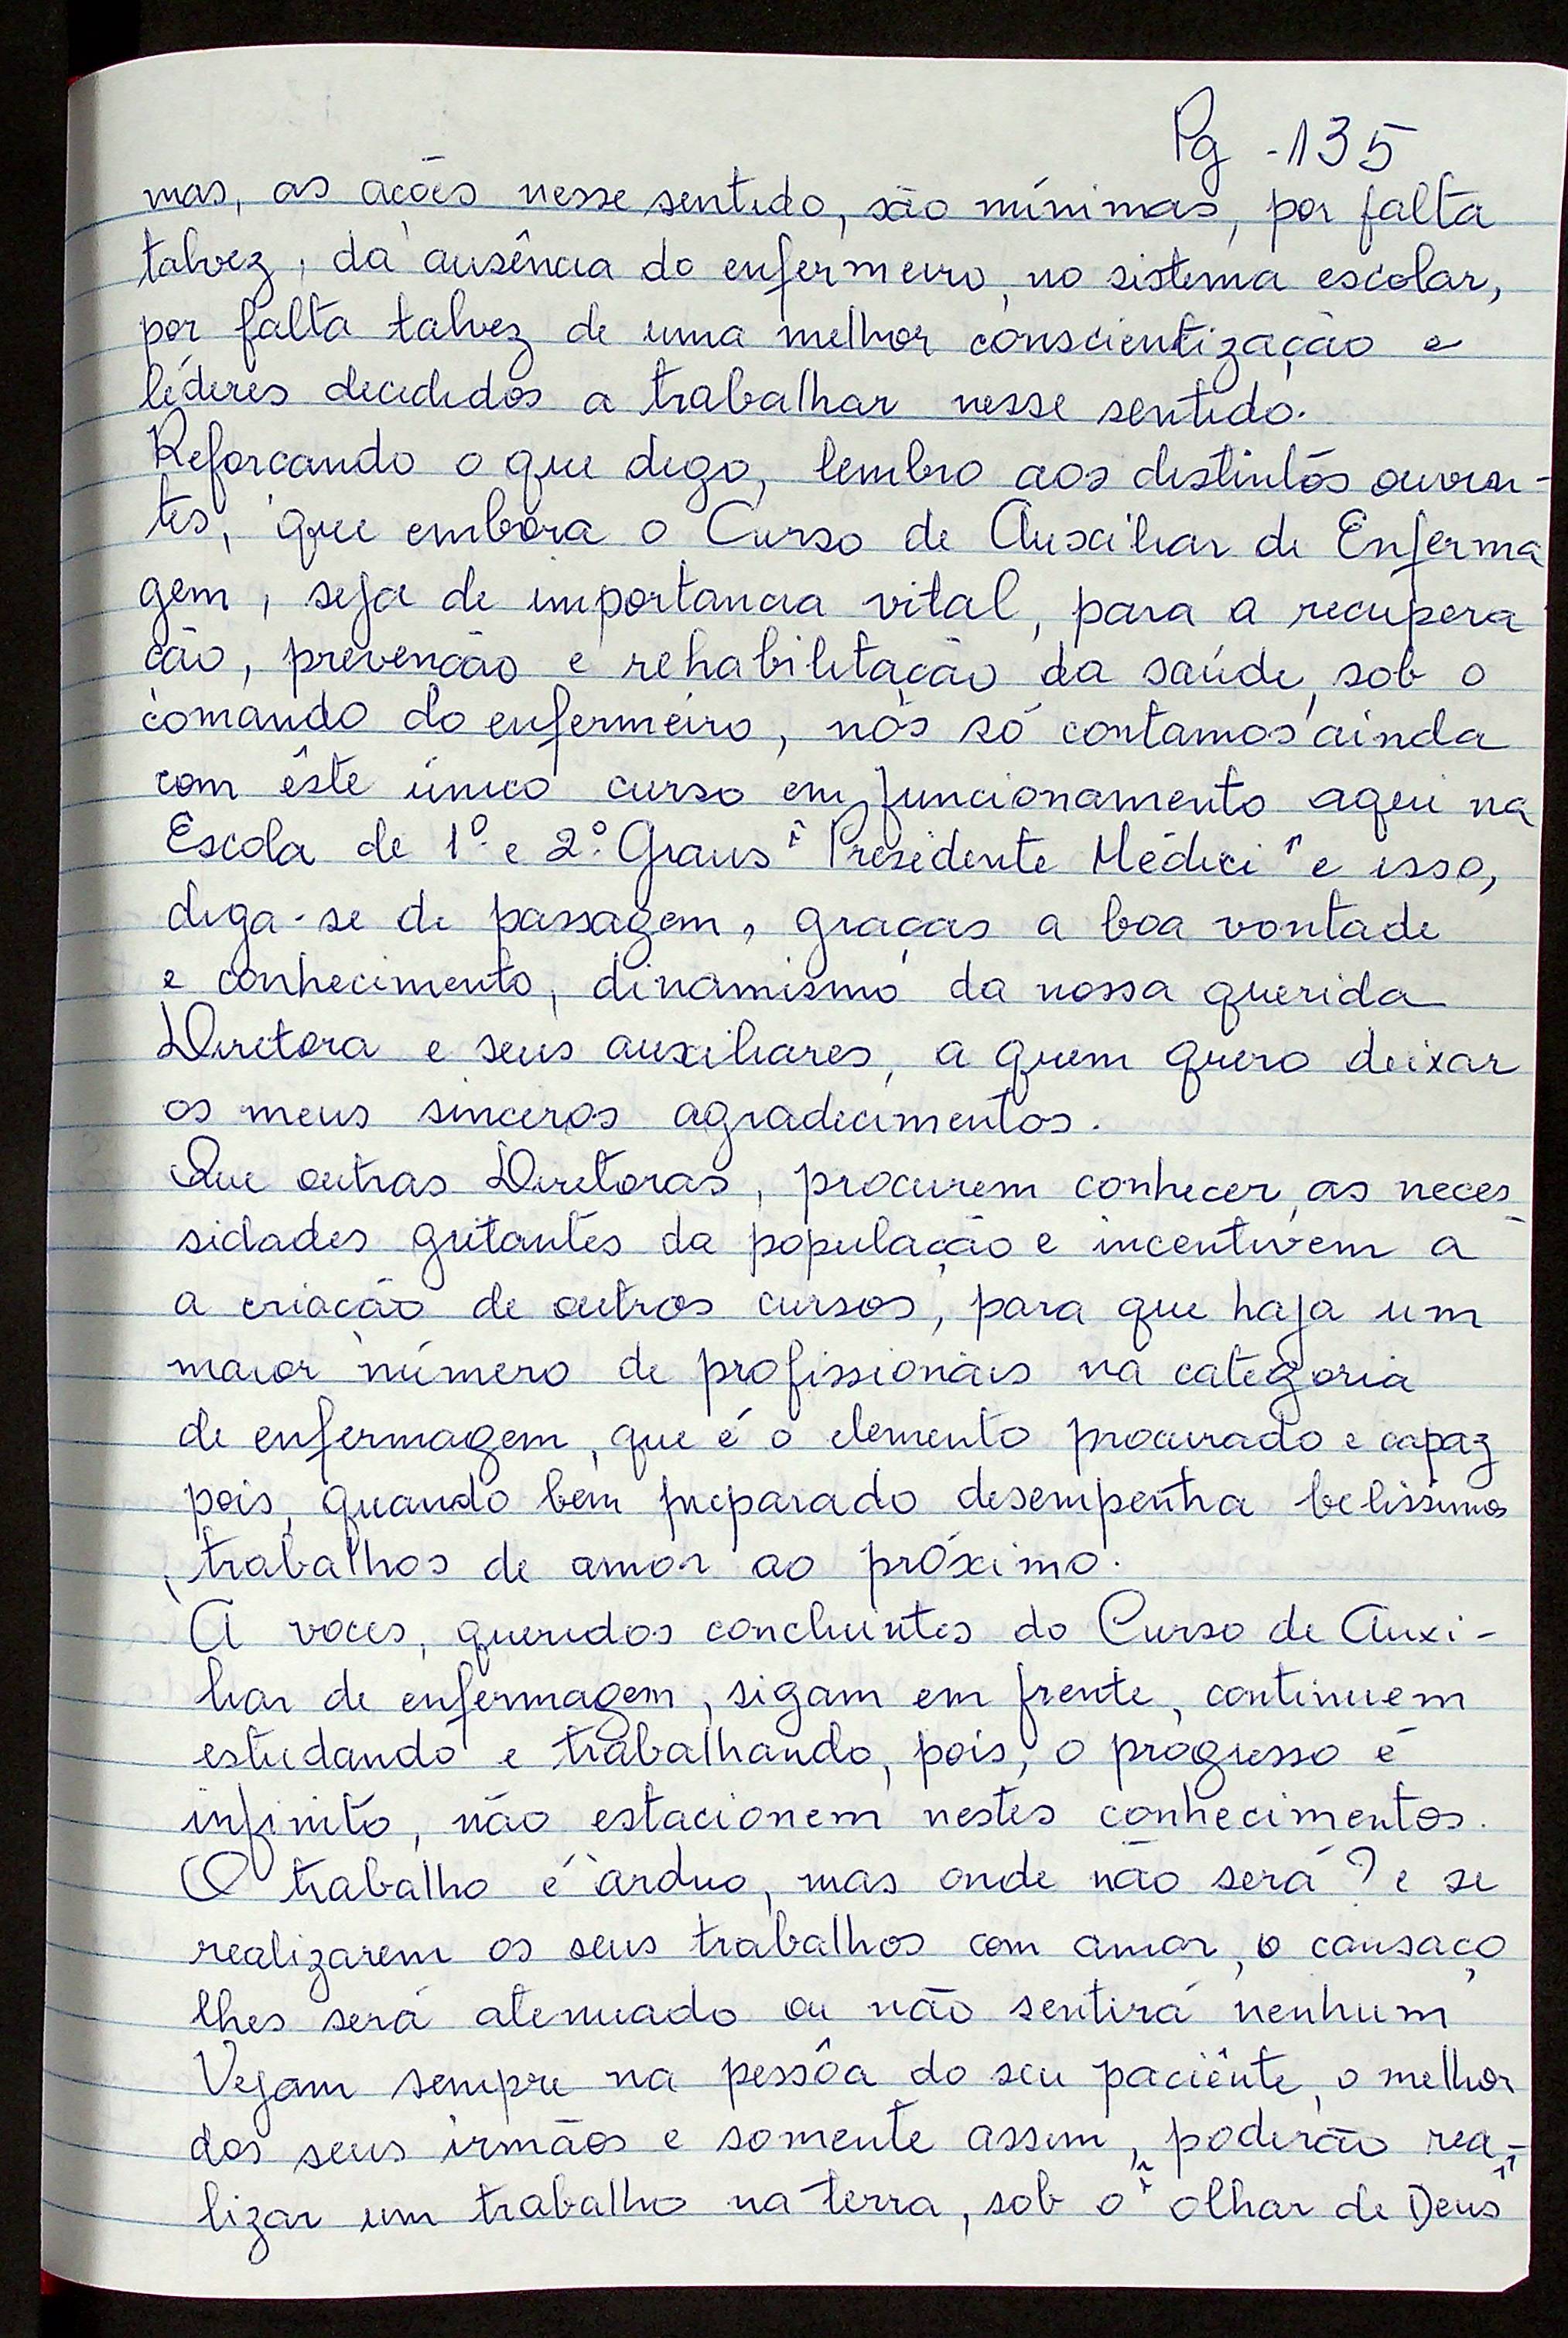 Pg - 135
mas, as ações nesse sentido, são mínimas, por falta
talvez, da ausência do enfermeiro, no sistema escolar,
por falta talvez de uma melhor conscientização e
líderes decididos a trabalhar nesse sentido.
Reforçando o que digo, lembro aos distintos ouvin-
tes, que embora o Curso de Auxiliar de Enferma
gem, seja de importancia vital, para a recupera
ção, prevenção e rehabilitação da saúde, sob o
comando do enfermeiro, nós só contamos ainda
com êste único curso em funcionamento aqui na
Escola de 1º e 2º Graus "Presidente Médici" e isso,
diga-se de passagem, graças a boa vontade
e conhecimento, dinamismo da nossa querida
Diretora e seus auxiliares, a quem quero deixar
os meus sinceros agradecimentos.
Que outras Diretoras, procurem conhecer, as neces
sidades gritantes da população e incentivem a
a criação de outros cursos, para que haja um
maior número de profissionais na categoria
de enfermagem, que é o elemento procurado e capaz
pois, quando bem preparado desempenha belissimos
trabalhos de amor ao próximo.
A voces, queridos concluintes do Curso de Auxi-
liar de enfermagem, sigam em frente, continuem
estudando e trabalhando, pois, o progresso é
infinito, não estacionem nestes conhecimentos.
O trabalho é árduo, mas onde não será? e se
realizarem os seus trabalhos com amor, o cansaço
lhes será atenuado ou não sentirá nenhum
Vejam sempre na pessôa do seu paciênte, o melhor
dos seus irmãos e somente assim, poderão rea-
lizar um trabalho na terra, sob o "olhar de Deus"